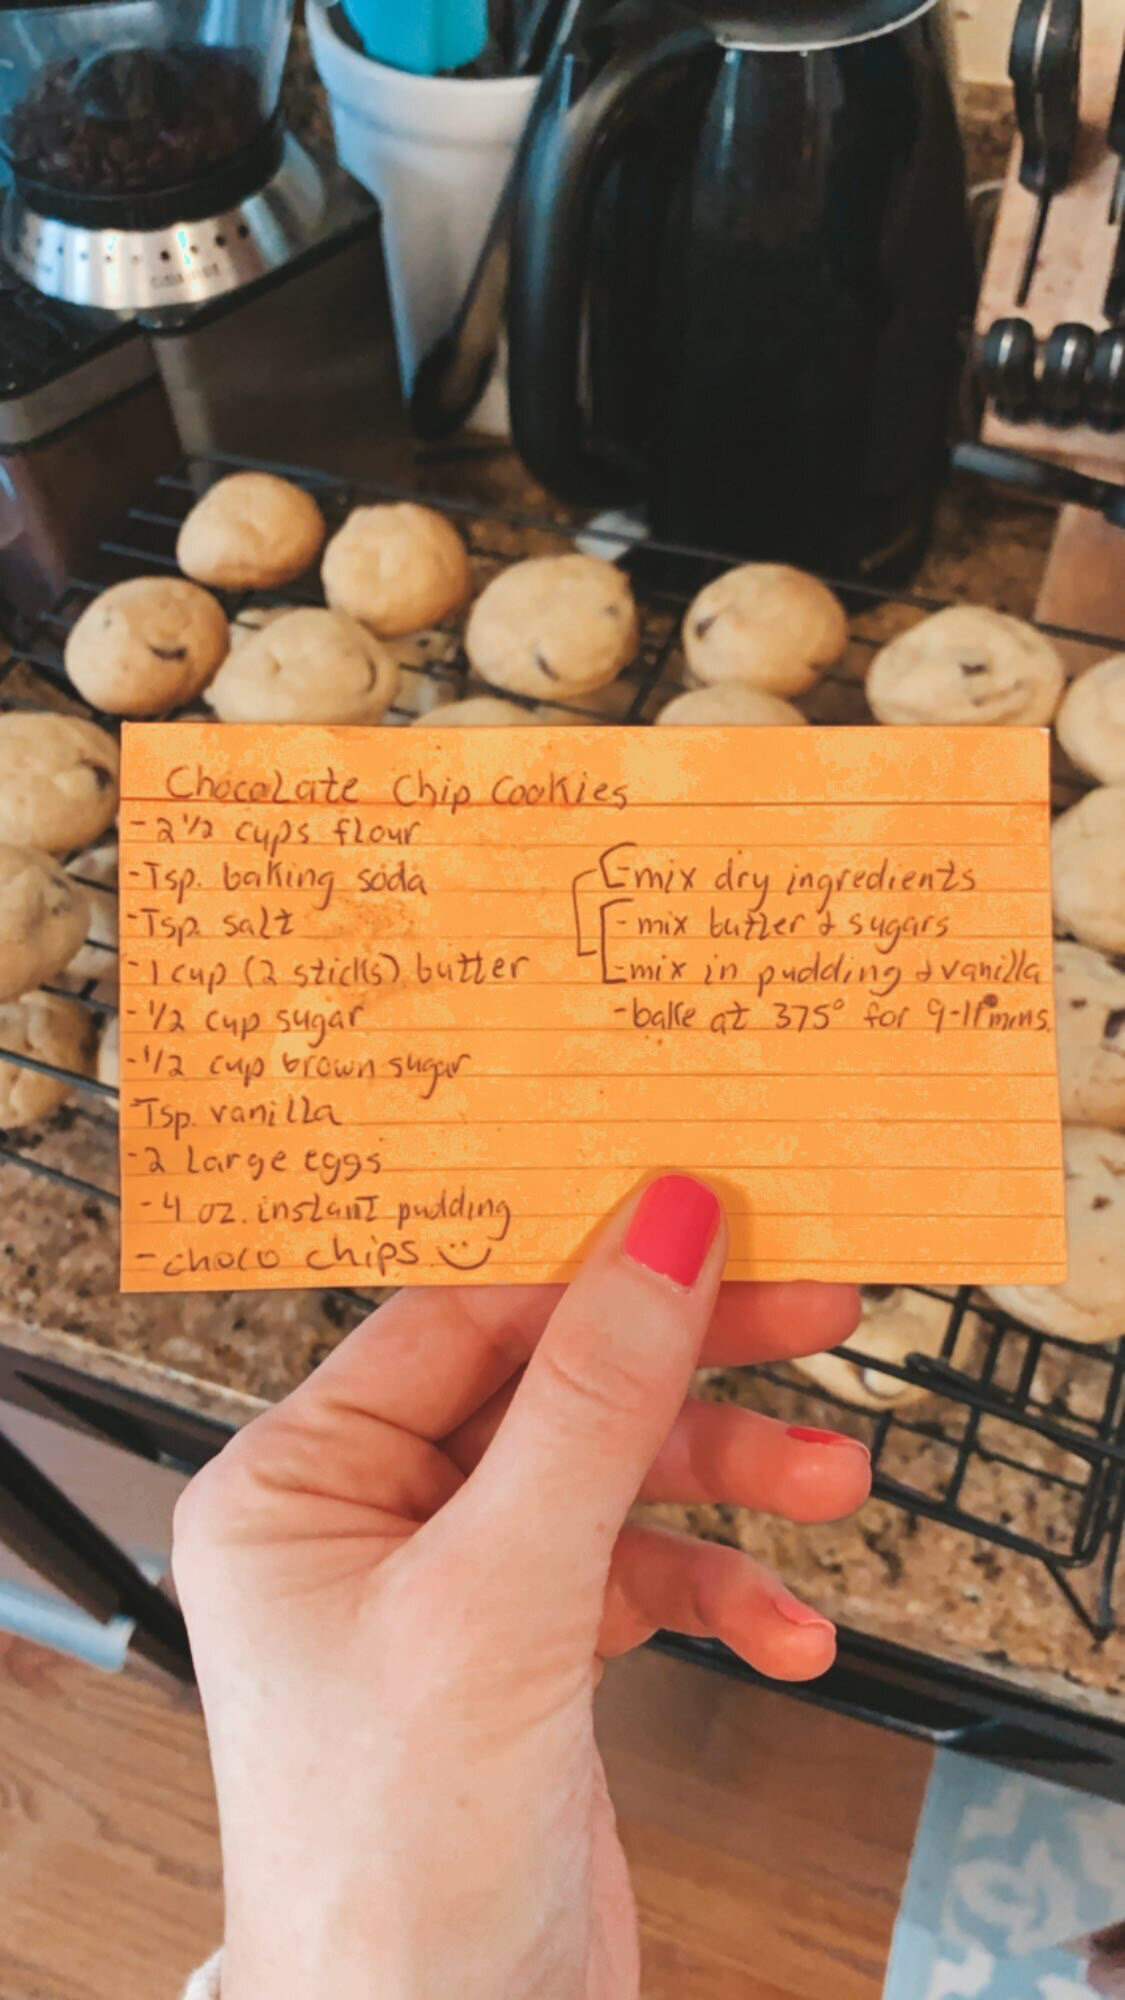 Chocolate Chip Cookies
- 2 1/2 cups flour
- Tsp. baking soda
- Tsp. salt
- 1 cup (2 sticks) butter
- 1/2 cup sugar
- 1/2 cup brown sugar
Tsp. vanilla
- 2 Large eggs
- 4 oz. instant pudding
- choco chips
- mix dry ingredients
- mix butter & sugars
- mix in pudding & vanilla
- bake at 375° for 9-11 mins.